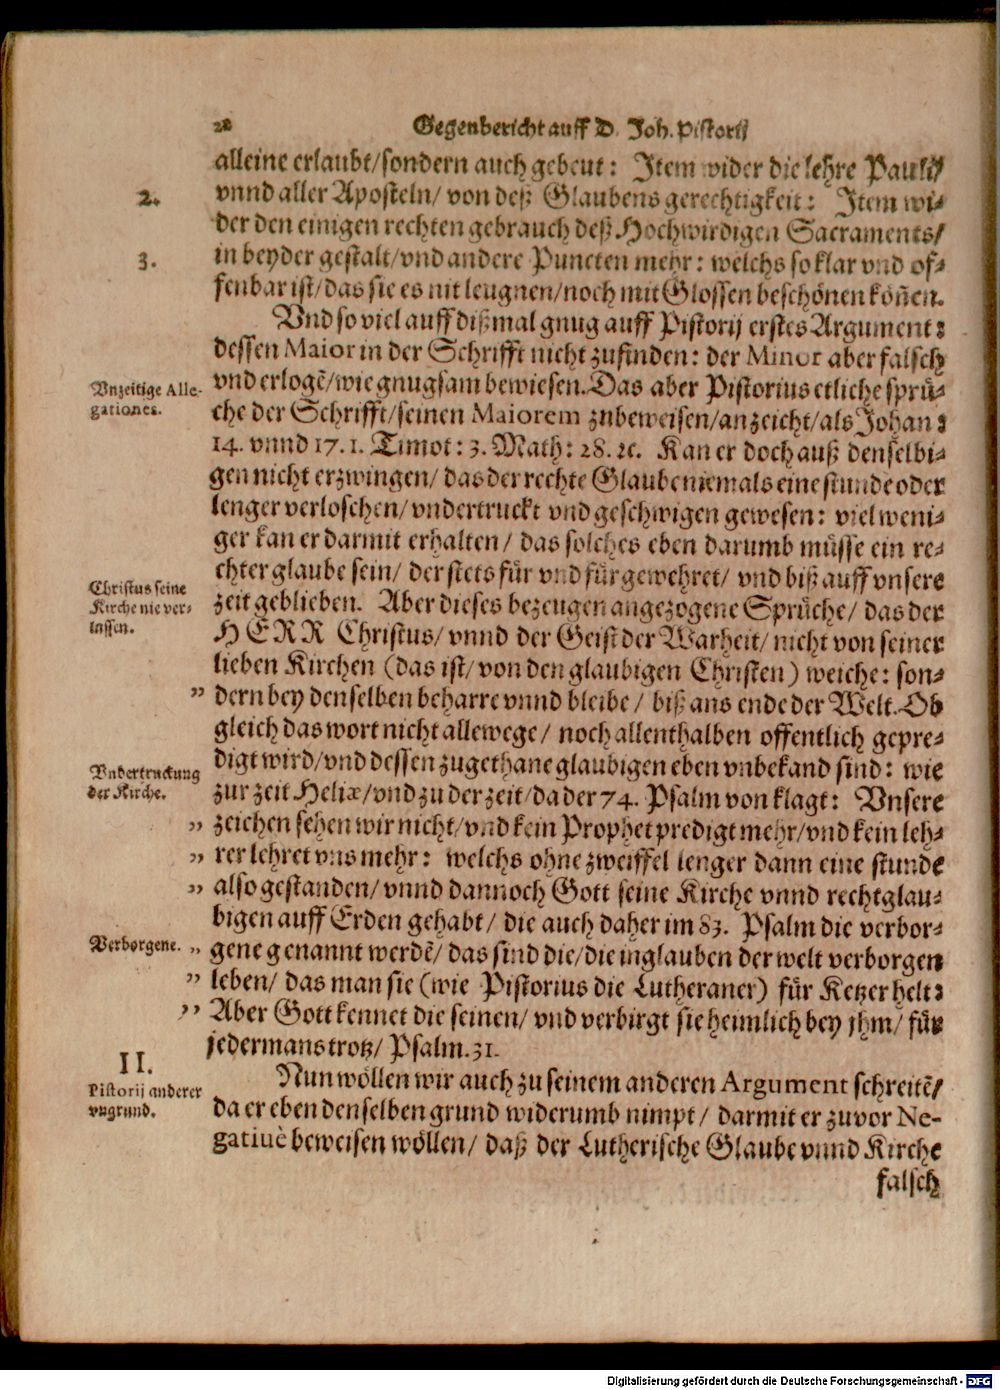 28 Gegenbericht auff D. Joh. Pistorij
alleine erlaubt/sondern auch gebeut: Item wider die lehre Pauli/
2. vnnd aller Aposteln/ von deß Glaubens gerechtigkeit: Item wi-
der den einigen rechten gebrauch deß Hochwirdigen Sacraments/
3. in beyder gestalt/vnd andere Puncten mehr: welchs so klar vnd of-
fenbar ist/das sie es nit leugnen/noch mit Glossen beschönen koñen.
Vnd so viel auff dißmal gnug auff Pistorij erstes Argument:
dessen Maior in der Schrifft nicht zufinden: der Minor aber falsch
Vnzeitige Alle-
gationes.
vnd erlogē/wie gnugsam bewiesen. Das aber Pistorius etliche sprü-
che der Schrifft/seinen Maiorem zubeweisen/anzeicht/als Johan:
14. vnnd 17. 1. Timot: 3. Math: 28. ꝛc. Kan er doch auß denselbi-
gen nicht erzwingen/ das der rechte Glaube niemals eine stunde oder
lenger verloschen/ vndertruckt vnd geschwigen gewesen: viel weni-
ger kan er darmit erhalten/ das solches eben darumb müsse ein re-
chter glaube sein/ der stets für vnd für gewehret/ vnd biß auff vnsere
Christus seine
Kirche nie ver-
lassen.
zeit geblieben. Aber dieses bezeugen angezogene Sprüche/ das der
HERR Christus/ vnnd der Geist der Warheit/ nicht von seiner
lieben Kirchen (das ist/ von den glaubigen Christen) weiche: son-
" dern bey denselben beharre vnnd bleibe/ biß ans ende der Welt. Ob
gleich das wort nicht allewege/ noch allenthalben offentlich gepre-
Vndertruckung
der Kirche.
digt wird/vnd dessen zugethane glaubigen eben vnbekand sind: wie
zur zeit Heliæ/vnd zu der zeit/da der 74. Psalm von klagt: Vnsere
" zeichen sehen wir nicht/vnd kein Prophet predigt mehr/vnd kein leh-
" rer lehret vns mehr: welchs ohne zweiffel lenger dann eine stunde
" also gestanden/ vnnd dannoch Gott seine Kirche vnnd rechtglau-
bigen auff Erden gehabt/ die auch daher im 83. Psalm die verbor-
Verborgene. " gene genannt werdē/ das sind die/die im glauben der welt verborgen
" leben/ das man sie (wie Pistorius die Lutheraner) für Ketzer helt:
" Aber Gott kennet die seinen/ vnd verbirgt sie heimlich bey jhm/ für
jedermans trotz/ Psalm. 31.
II.
Pistorij anderer
vngrund.
Nun wöllen wir auch zu seinem anderen Argument schreitē/
da er eben denselben grund widerumb nimpt/ darmit er zuvor Ne-
gatiuè beweisen wöllen/ daß der Lutherische Glaube vnnd Kirche
falsch
Digitalisierung gefördert durch die Deutsche Forschungsgemeinschaft - DFG